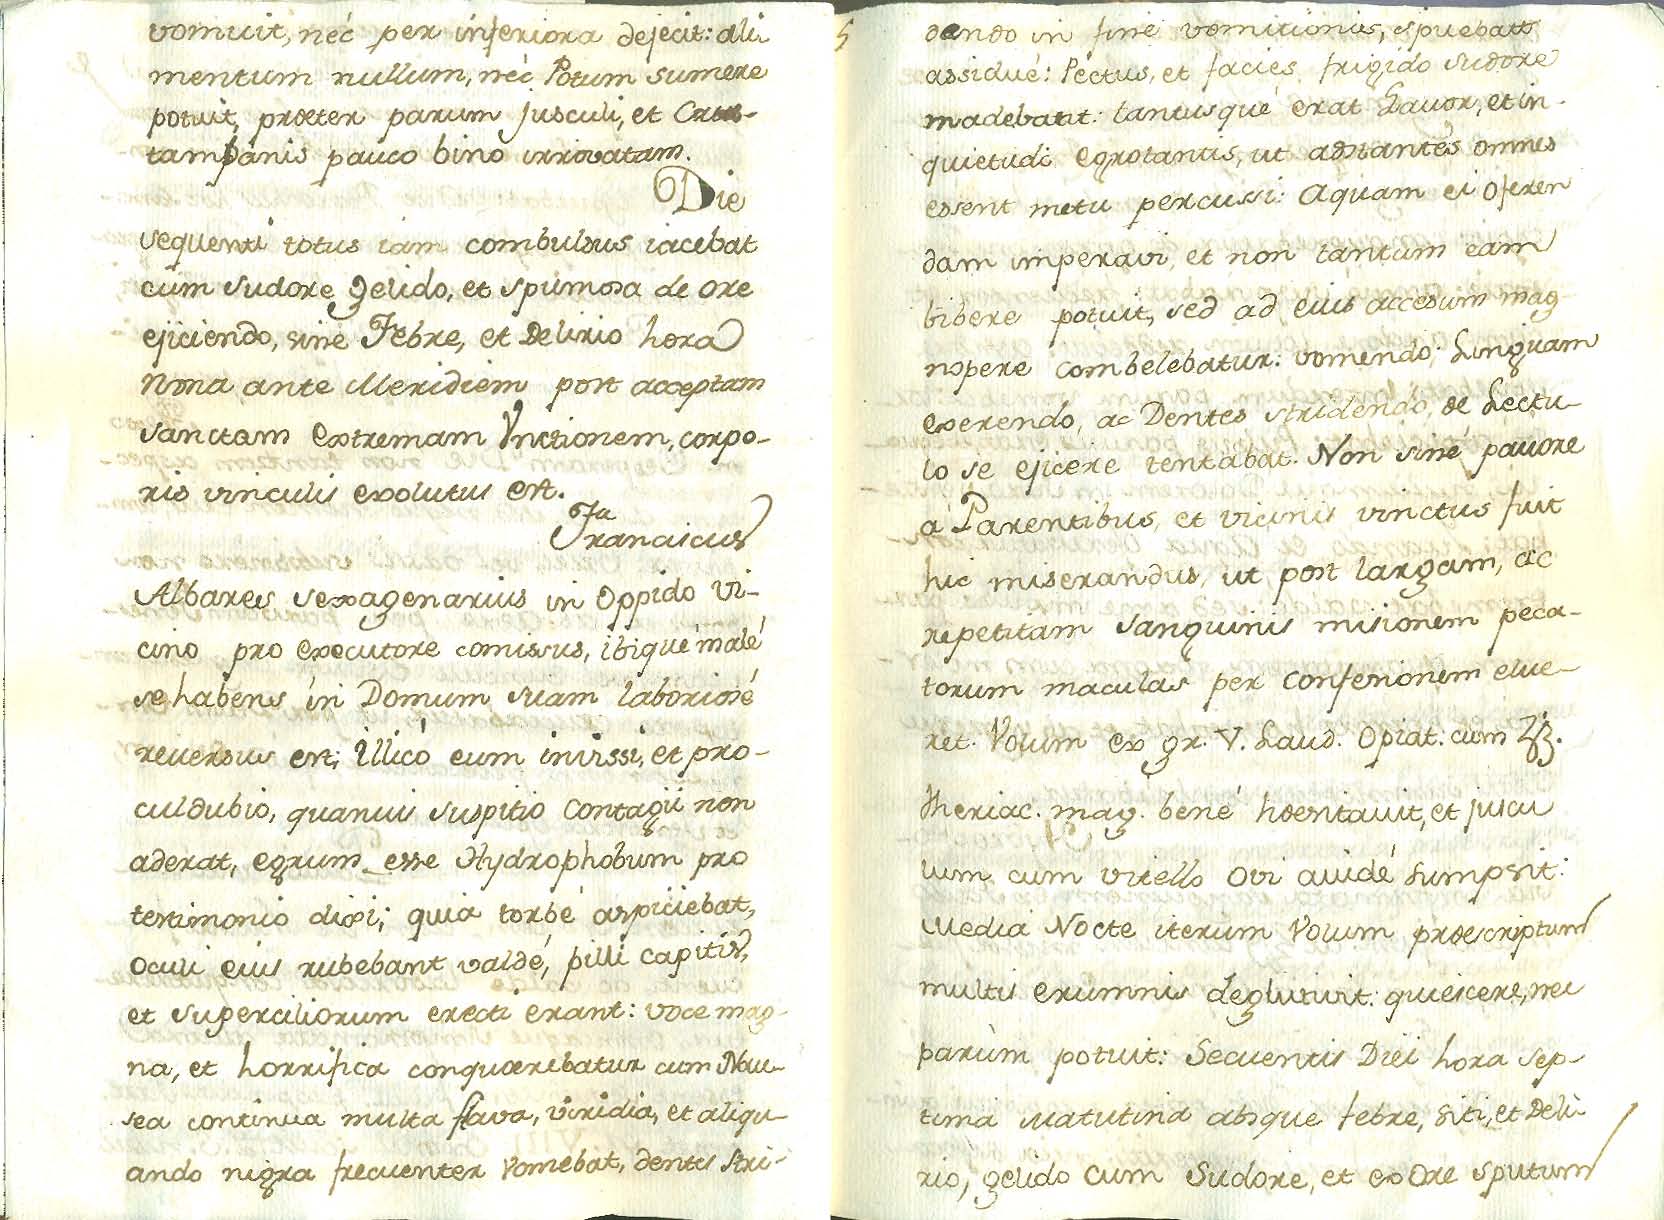 vomuit, néc per inferiora dejecit: ali-
mentum nullum, néc Potum sumere
potuit, proeter parum Jusculi, et Crus-
tam panis pauco bino irroratam.
Die
sequenti totus iam combulsus iacebat
cum sudore gelido, et spumosa de ore
ejiciendo, sine Febre, et Delirio hora
Nona ante Meridiem post acceptam
sanctam Extremam Unctionem, corpo-
ris vinculis exolutus est.
Franciscus
Albares sexagenarius in Oppido Vi-
cino pro Executore comissus, ibique malé
se habens in Domum suam laboriosé
reversus est; Illicò eum invissi, et pro-
culdubio, quanvis suspitio Contagii non
aderat, egrum esse Hydrophobum pro
testimonio dixi; quia torbé aspiciebat,
Oculi eius rubebant valdé, pilli capitis,
et superciliorum erecti erant: voce mag-
na, et horrifica conquoerebatur cum Nau-
sea continua multa flava, viridia, et aliqu-
ando nigra frecuenter vomebat, dentes stri-
5
dendo in fine vomitionis, espuebat
assidué: Pectus, et facies frigido sudore
madebant: tantusque erat Pavor, et in-
quietudo egrotantis, ut adstantes omnes
essent metu percussi: Aquam ei oferen
dam imperavi, et non tantum eam
bibere potuit, sed ad eius accesum mag-
nopere combelebatur: vomendo; Linguam
exerendo, ac Dentes stridendo, de Lectu-
lo se ejicere tentabat. Non siné pavore
a Parentibus, et vicinis vinctus fuit
hic miserandus, ut post largam, ac
repetitam sanguinis misionem peca-
torum maculas per Confesionem elue-
ret. Volum ex gr. V. Laud. Opiat: cum
theriac. mag. bené hoesitavit, et juscu
lum cum vitello Ovi avidé sumpsit:
Media Nocte iterum Volum proescriptum
multis erumnis deglutivit: quiescere, nec
parùm potuit: Secuentis Diei hora sep-
tima Matutina absque febre, siti, et Deli-
rio, gelido cum Sudore, et ex Ore sputum